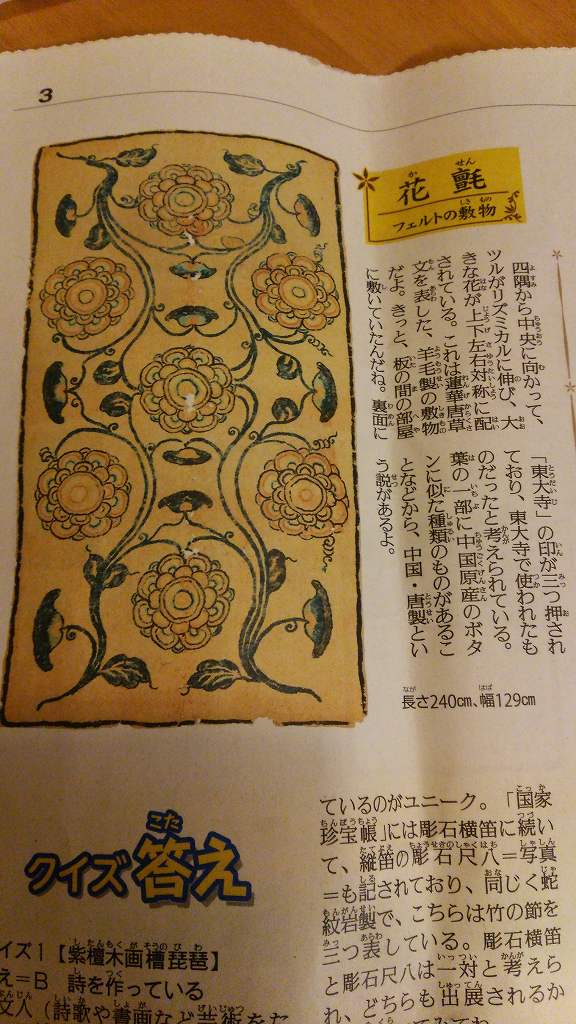 3
花氈
フェルトの敷物
四隅から中央に向かって、
ツルがリズミカルに伸び、大
きな花が上下左右対称に配
されている。これは蓮華唐草
文を表した、羊毛製の敷物
だよ。きっと、板の間の部屋
に敷いていたんだね。裏面に
「東大寺」の印が三つ押され
ており、東大寺で使われたも
のだったと考えられている。
葉の一部に中国原産のボタ
ンに似た種類のものがあるこ
となどから、中国・唐製とい
う説があるよ。
長さ240㎝、幅129㎝
ているのがユニーク。「国家
珍宝帳」には彫石横笛に続い
て、縦笛の彫石尺八＝写真
＝も記されており、同じく蛇
紋岩製で、こちらは竹の節を
三つ表している。彫石横笛
と彫石尺八は一対と考えら
れ、どちらも出展されるか
クイズ答え
イズ1【紫檀木画槽琵琶】
え＝B 詩を作っている
文人（詩歌や書画など芸術をた